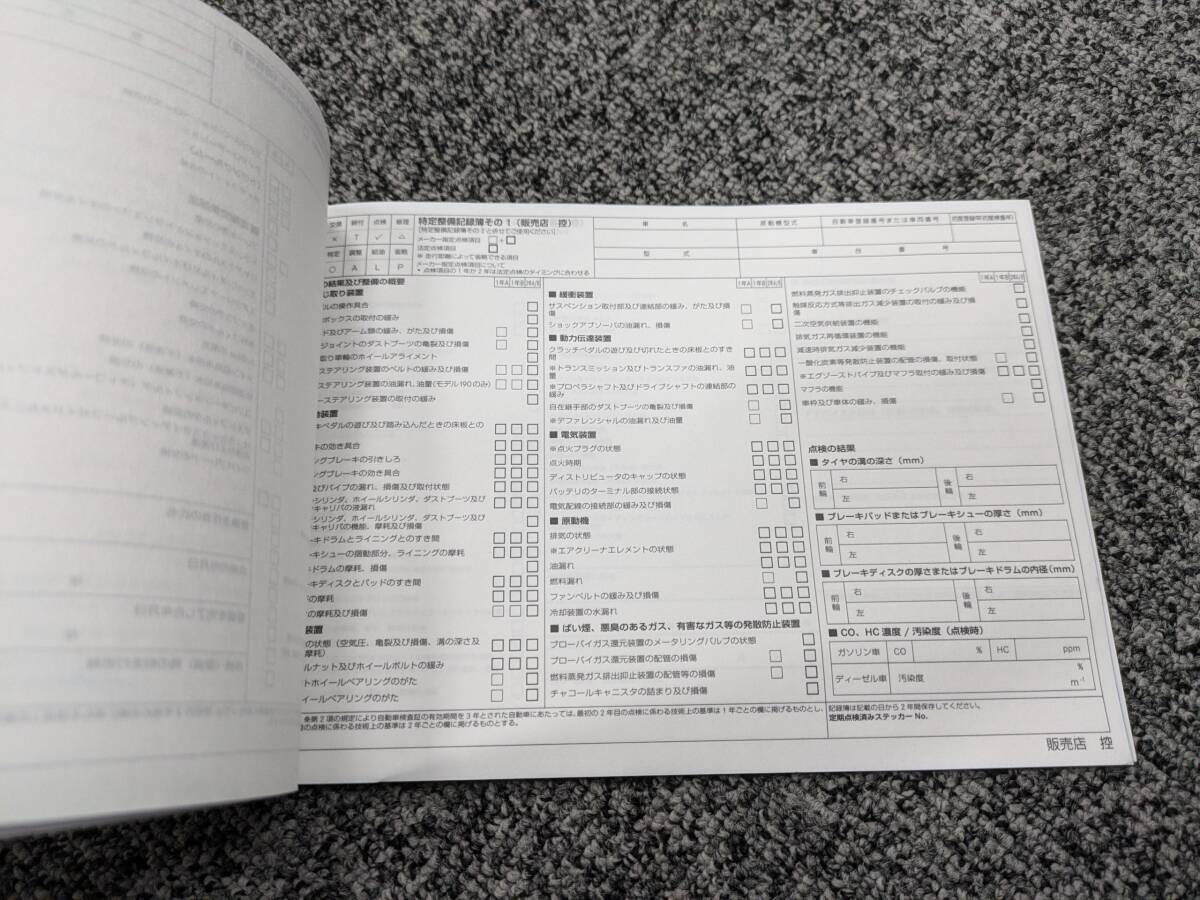 交換 締付 点検 修理
× T ✓ △
特定 調整 給油 省略
○ A L P
特定整備記録簿その1(販売店 控)
[特定整備記録簿その2と併せてご使用ください]
メーカー指定点検項目 □+□
法定点検項目 □
※ 走行距離によって省略できる項目
メーカー指定点検項目について
・点検項目の1年か2年は法定点検のタイミングに合わせる
車 名
原動機型式
自動車登録番号または車両番号
型 式
車 台 番 号
の結果及び整備の概要
1年A 1年B 2年A/B
じ取り装置
ルの操作具合
ボックスの取付の緩み
ド及びアーム類の緩み、がた及び損傷
ジョイントのダストブーツの亀裂及び損傷
取り車輪のホイールアライメント
ステアリング装置のベルトの緩み及び損傷
ステアリング装置の油漏れ、油量(モデル190のみ)
ーステアリング装置の取付の緩み
装置
キペダルの遊び及び踏み込んだときの床板との
キの効き具合
ングブレーキの引きしろ
ングブレーキの効き具合
及びパイプの漏れ、損傷及び取付状態
シリンダ、ホイールシリンダ、ダストブーツ及び
キャリパの液漏れ
シリンダ、ホイールシリンダ、ダストブーツ及び
キャリパの機能、摩耗及び損傷
ーキドラムとライニングとのすき間
キシューの摺動部分、ライニングの摩耗
ドラムの摩耗、損傷
ーキディスクとパッドのすき間
の摩耗
の摩耗及び損傷
装置
の状態(空気圧、亀裂及び損傷、溝の深さ及
摩耗)
ルナット及びホイールボルトの緩み
トホイールベアリングのがた
イールベアリングのがた
1年A 1年B 2年A/B
■ 緩衝装置
サスペンション取付部及び連結部の緩み、がた及び損
傷
ショックアブソーバの油漏れ、損傷
■ 動力伝達装置
クラッチペダルの遊び及び切れたときの床板とのすき
間
※トランスミッション及びトランスファの油漏れ、油
量
※プロペラシャフト及びドライブシャフトの連結部の
緩み
自在継手部のダストブーツの亀裂及び損傷
※デファレンシャルの油漏れ及び油量
■ 電気装置
※点火プラグの状態
点火時期
ディストリビュータのキャップの状態
バッテリのターミナル部の接続状態
電気配線の接続部の緩み及び損傷
■ 原動機
排気の状態
※エアクリーナエレメントの状態
油漏れ
燃料漏れ
ファンベルトの緩み及び損傷
冷却装置の水漏れ
■ ばい煙、悪臭のあるガス、有害なガス等の発散防止装置
ブローバイガス還元装置のメータリングバルブの状態
ブローバイガス還元装置の配管の損傷
燃料蒸発ガス排出抑止装置の配管等の損傷
チャコールキャニスタの詰まり及び損傷
1年A 1年B 2年A/B
燃料蒸発ガス排出抑止装置のチェックバルブの機能
触媒反応方式等排出ガス減少装置の取付の緩み及び損
傷
二次空気供給装置の機能
排気ガス再循環装置の機能
減速時排気ガス減少装置の機能
一酸化炭素等発散防止装置の配管の損傷、取付状態
※エグゾーストパイプ及びマフラ取付の緩み及び損傷
マフラの機能
車枠及び車体の緩み、損傷
点検の結果
■ タイヤの溝の深さ(mm)
前輪 右 後輪 右
左 左
■ ブレーキパッドまたはブレーキシューの厚さ(mm)
前輪 右 後輪 右
左 左
■ ブレーキディスクの厚さまたはブレーキドラムの内径(mm)
前輪 右 後輪 右
左 左
■ CO、HC 濃度 / 汚染度 (点検時)
ガソリン車 CO % HC ppm
ディーゼル車 汚染度 %
m⁻¹
条第2項の規定により自動車検査証の有効期間を3年とされた自動車にあたっては、最初の2年目の点検に係わる技術上の基準は1年ごとの欄に掲げるものとし、
の点検に係わる技術上の基準は2年ごとの欄に掲げるものとする。
記録簿は記載の日から2年間保存してください。
定期点検済みステッカー No.
販売店 控